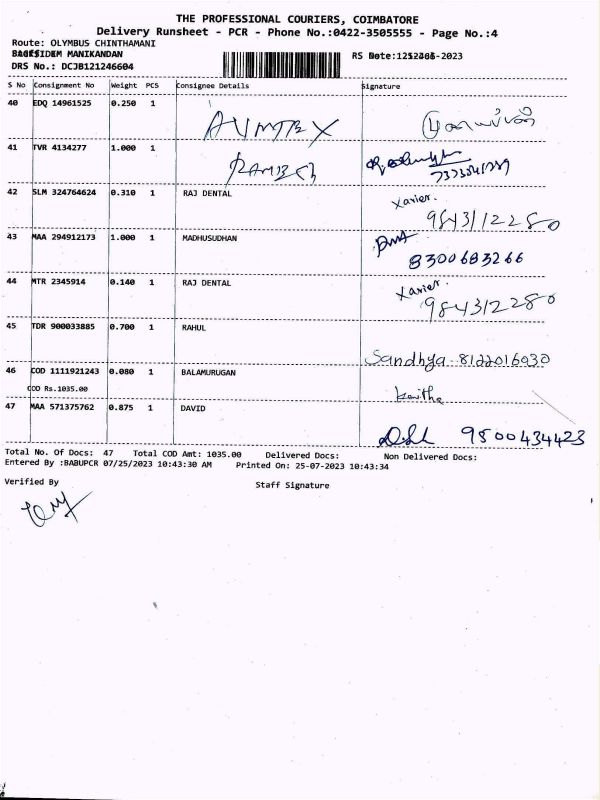 THE PROFESSIONAL COURIERS, COIMBATORE
Delivery Runsheet - PCR - Phone No.:0422-3505555 - Page No.:4
Route: OLYMBUS CHINTHAMANI
MANIKANDAN
DRS No.: DCJB121246604
RS No
S No Consignment No Weight PCS Consignee Details Signature
40 EDQ 14961525 0.250 1
41 TVR 4134277 1.000 1
42 SLM 324764624 0.310 1 RAJ DENTAL Xavier.
43 MAA 294912173 1.000 1 MADHUSUDHAN
8300683266
44 MTR 2345914 0.140 1 RAJ DENTAL Xavier.
9843122280
45 TDR 900033885 0.700 1 RAHUL
Sandhya 8122016030
46 COD 1111921243 0.080 1 BALAMURUGAN
COD Rs.1035.00
47 MAA 571375762 0.875 1 DAVID
9500434423
Total No. Of Docs: 47 Total COD Amt: 1035.00 Delivered Docs: Non Delivered Docs:
Entered By :BABUPCR 07/25/2023 10:43:30 AM Printed On: 25-07-2023 10:43:34
Verified By Staff Signature